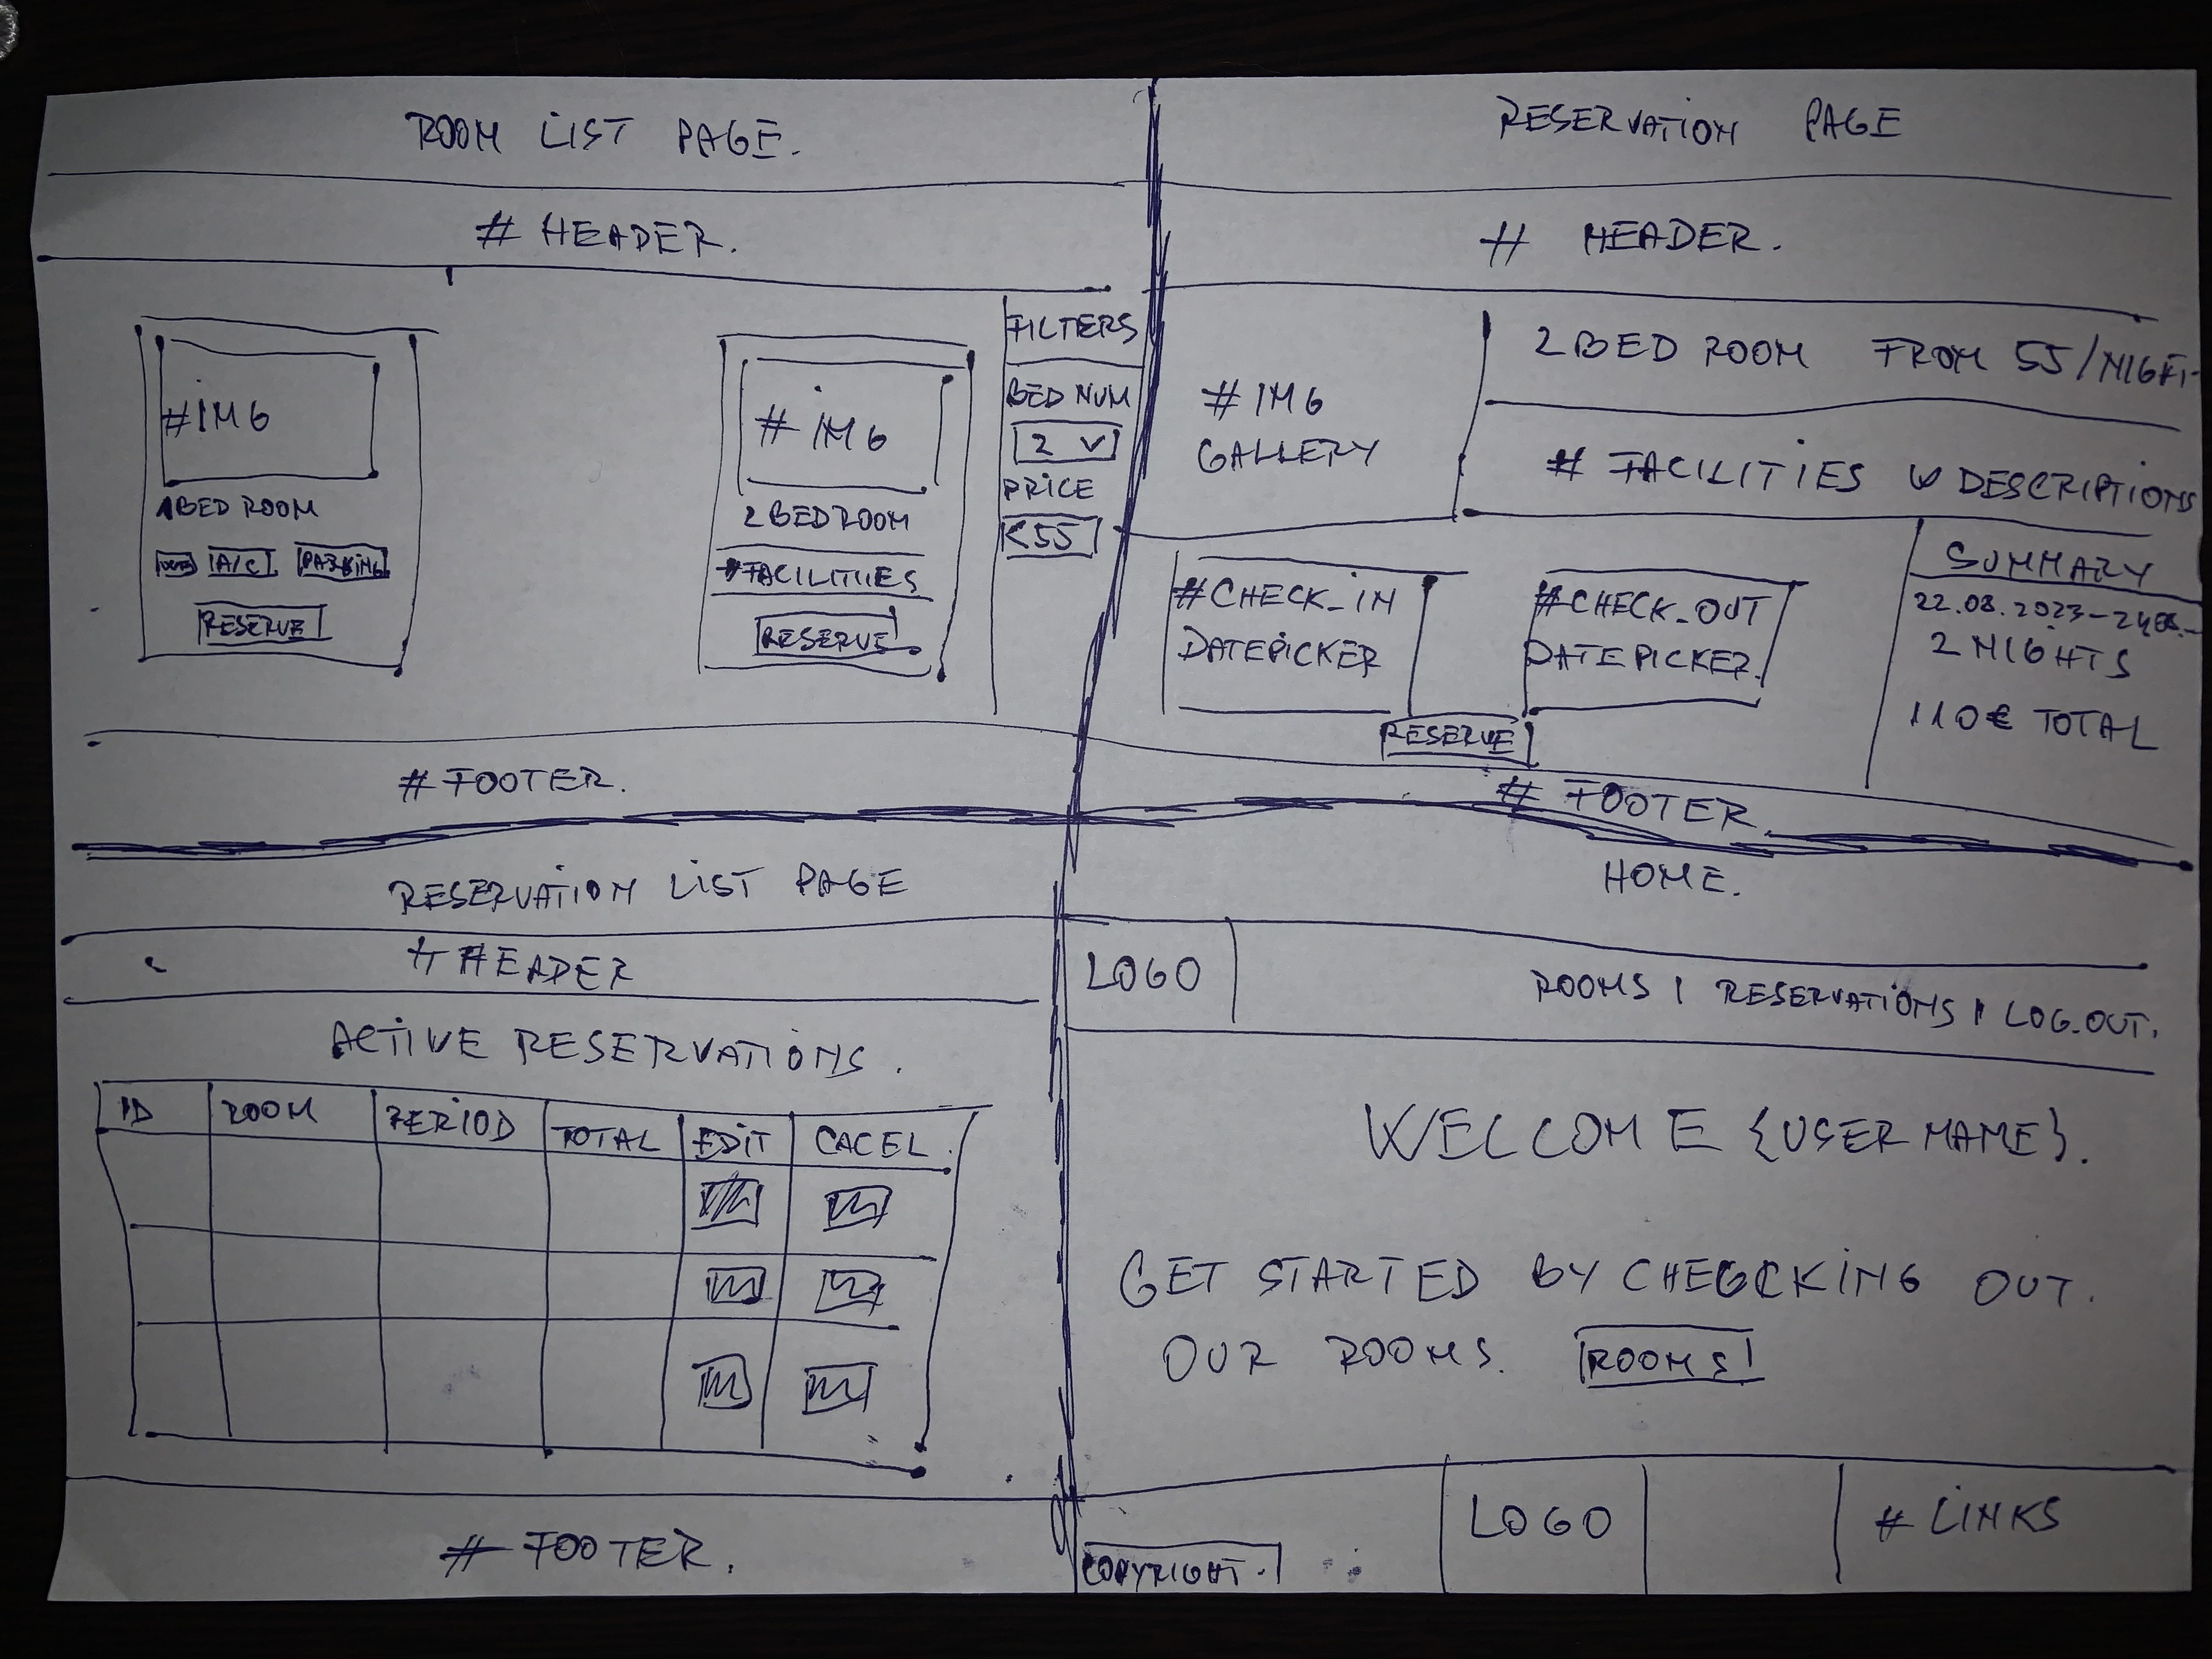 ROOM LIST PAGE.
# HEADER.
#IMG
1BED ROOM
A/C PARKING
RESERVE
# IMG
2 BED ROOM
#FACILITIIES
RESERVE
FILTERS
BED NUM
2 V
PRICE
<55
# FOOTER.
RESERVATION PAGE
# HEADER.
# IMG
GALLERY
2 BED ROOM FROM 55/NIGHT
# FACILITIES & DESCRIPTIONS
#CHECK_IN
DATEPICKER
#CHECK_OUT
DATEPICKER.
RESERVE
SUMMARY
22.08.2023-24.08.
2 NIGHTS
110€ TOTAL
# FOOTER.
RESERVATION LIST PAGE
# HEADER
ACTIVE RESERVATIONS.
ID ROOM PERIOD TOTAL EDIT CACEL.
# FOOTER.
HOME.
LOGO ROOMS | RESERVATIONS | LOG_OUT.
WELCOME {USER NAME}.
GET STARTED BY CHEGCKING OUT.
OUR ROOMS. ROOMS
COPYRIGHT. LOGO # LINKS